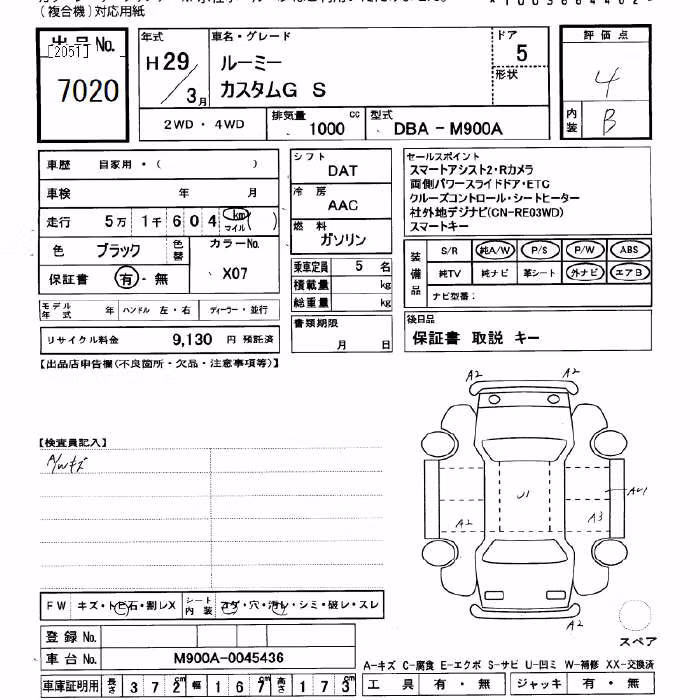 (複合機)対応用紙
出品No.
[2051]
7020
年式
H29
3月
車名・グレード
ルーミー
カスタムG S
ドア
5
形状
評価点
4
内装
B
2WD・4WD
排気量
1000
cc
型式
DBA－M900A
車歴 自家用・( )
車検 年 月
走行 5万 1千 604 km マイル ( )
色 ブラック
色替
カラーNo.
X07
保証書 有・無
モデル年式 年 ハンドル 左・右 ディーラー・並行
リサイクル料金 9,130 円 預託済
シフト
DAT
冷房
AAC
燃料
ガソリン
乗車定員 5 名
積載量 kg
総重量 kg
書類期限
月 日
セールスポイント
スマートアシスト2・Rカメラ
両側パワースライドドア・ETC
クルーズコントロール・シートヒーター
社外地デジナビ(CN-RE03WD)
スマートキー
装備品
S/R 純A/W P/S P/W ABS
純TV 純ナビ 革シート 外ナビ エアB
ナビ型番:
後日品
保証書 取説 キー
【出品店申告欄(不良箇所・欠品・注意事項等)】
【検査員記入】
A/Wキズ
A2 A2
U1
A2
A3
A2
スペア
FW キズ・トビ石・割レX
シート内装 コゲ・穴・汚レ・シミ・破レ・スレ
登録No.
車台No. M900A-0045436
車庫証明用 長さ 372cm 幅 167cm 高さ 173cm
A-キズ C-腐食 E-エクボ S-サビ U-凹ミ W-補修 XX-交換済
工具 有・無 ジャッキ 有・無